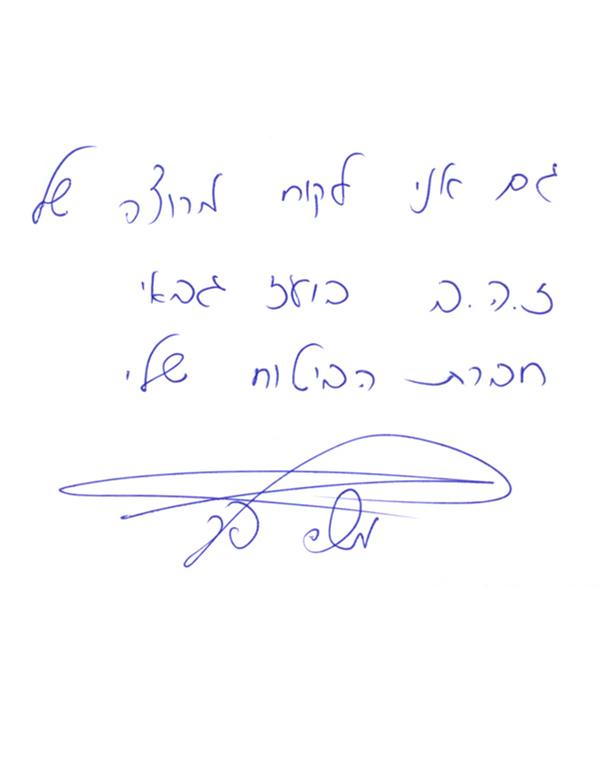 גם אני לקוח מרוצה של
ז.ה.ב בועז גבאי
חברת הביטוח שלי